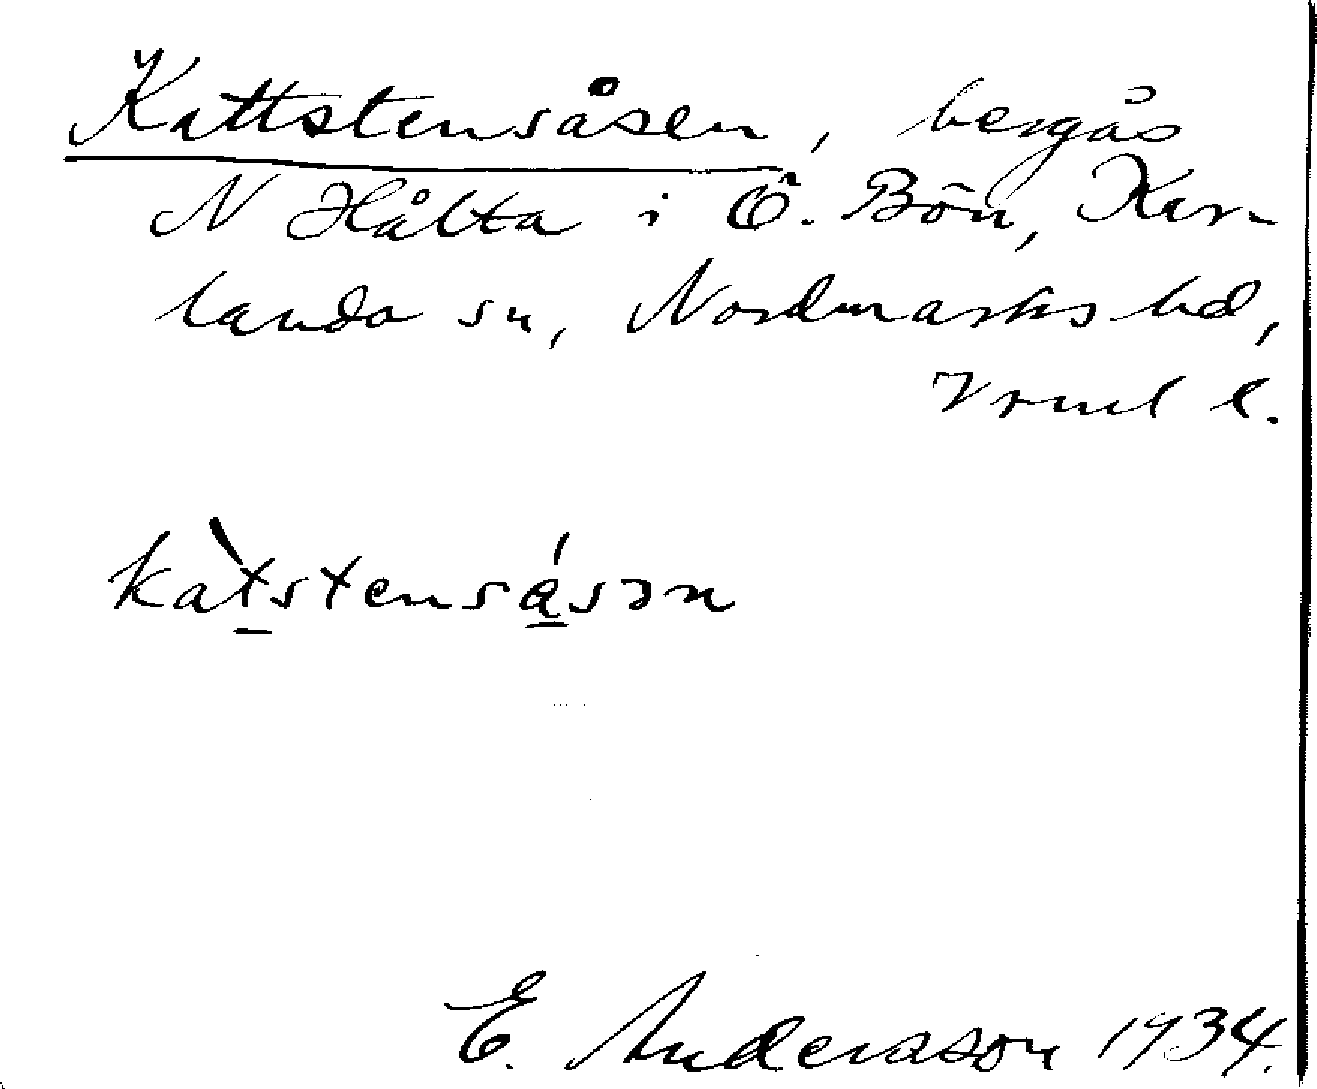 Kattstensåsen, bergås
N Hålta i Ö. Bön, Kar-
landa sn, Nordmarks hd,
Vrml l.
kàtstensásən
E. Andersson 1934.